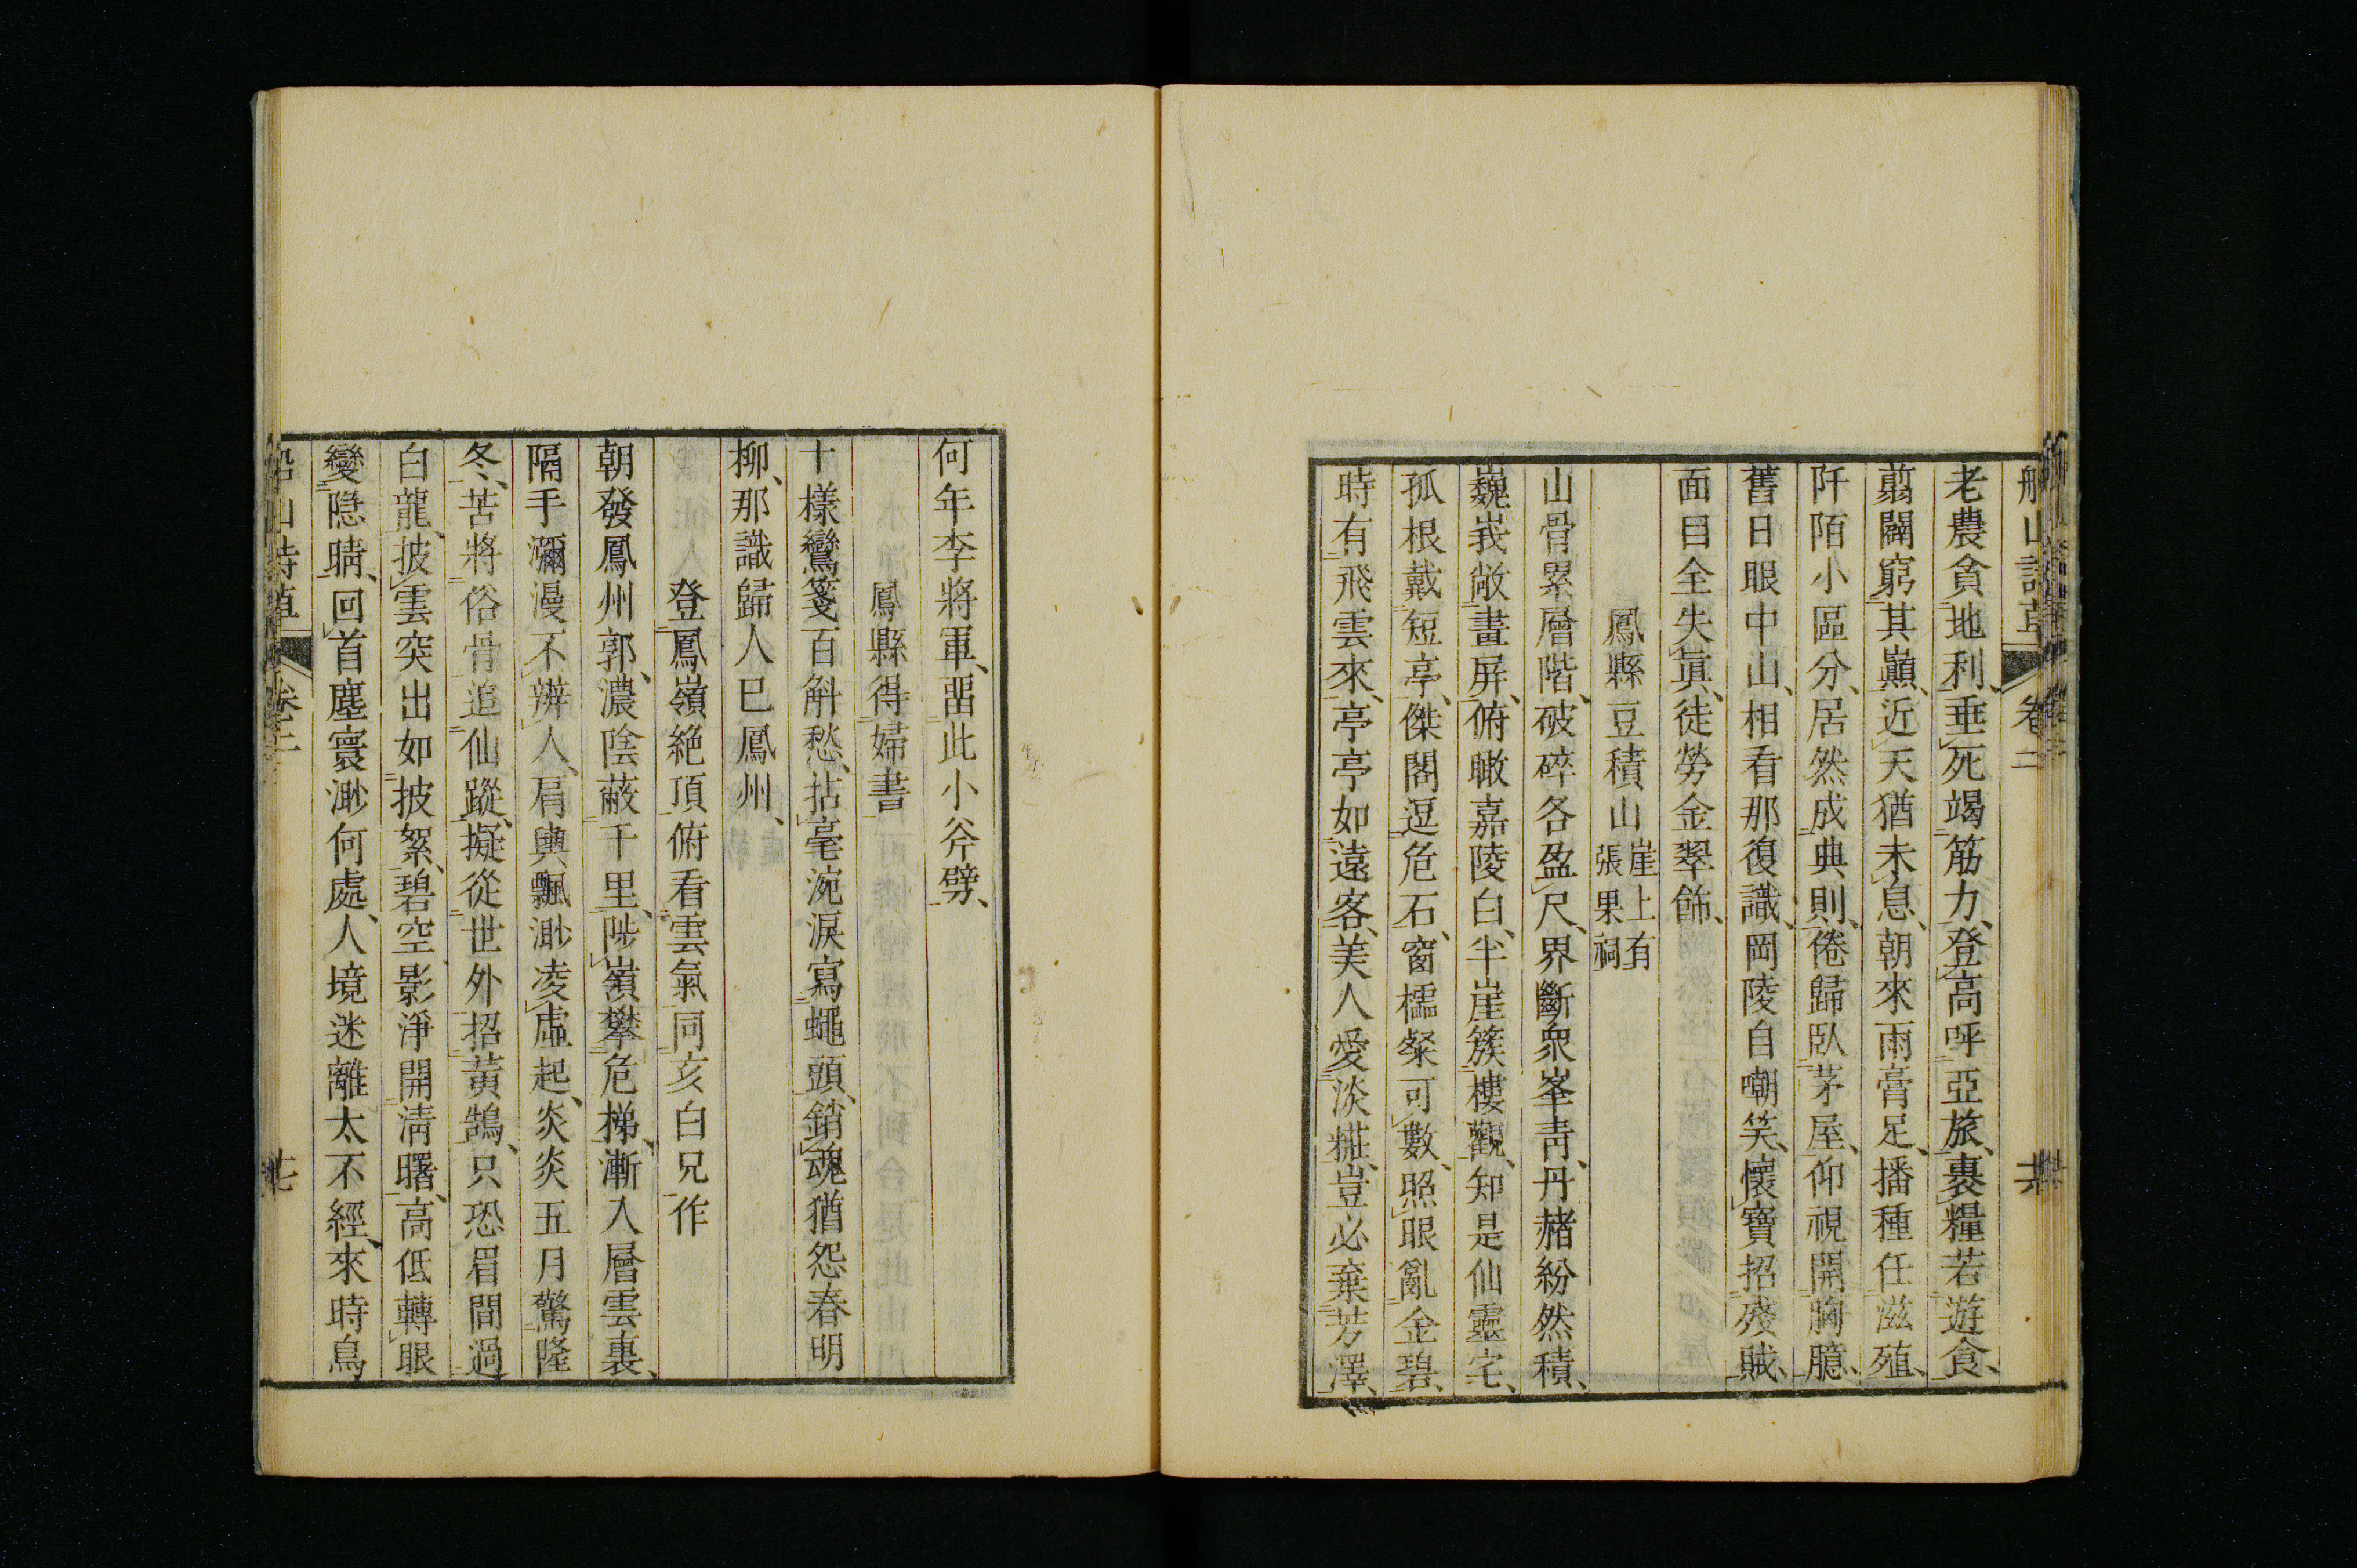 船山詩草 卷二 十六
老農貪地利、垂死竭筋力、登高呼亞旅、裹糧若遊食、
翦闢窮其巔、近天猶未息、朝來雨膏足、播種任滋殖、
阡陌小區分、居然成典則、倦歸臥茅屋、仰視開胸臆、
舊日眼中山、相看那復識、岡陵自嘲笑、懷寶招殘賊、
面目全失眞、徒勞金翠飾、
鳳縣豆積山 崖上有張果祠
山骨累層階、破碎各盈尺、界斷衆峯靑、丹赭紛然積、
巍峩敞畫屏、俯瞰嘉陵白、半崖簇樓觀、知是仙靈宅、
孤根戴短亭、傑閣逗危石、窗櫺粲可數、照眼亂金碧、
時有飛雲來、亭亭如遠客、美人愛淡糚、豈必棄芳澤、
何年李將軍、畱此小斧劈、
鳳縣得婦書
十樣鸞箋百斛愁、拈毫涴淚寫蠅頭、銷魂猶怨春明
柳、那識歸人巳鳳州、
登鳳嶺絶頂俯看雲氣同亥白兄作
朝發鳳州郭、濃陰蔽千里、陟嶺攀危梯、漸入層雲裏、
隔手瀰漫不辨人、肩輿飄渺凌虛起、炎炎五月驚隆
冬、苦將俗骨追仙蹤、擬從世外招黃鵠、只恐眉間過
白龍、披雲突出如披絮、碧空影淨開淸曙、高低轉眼
變隂晴、回首塵寰渺何處、人境迷離太不經、來時鳥
船山詩草 卷二 十七